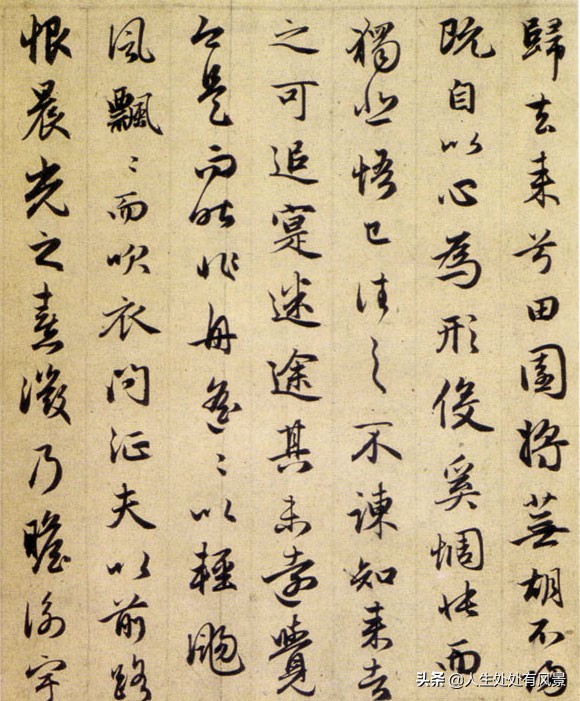 歸去来兮田園將蕪胡不歸
既自以心為形役奚惆悵而
獨悲悟已往之不諫知来者
之可追寔迷途其未遠覺
今是而昨非舟遥〻以輕颺
風飄〻而吹衣問征夫以前路
恨晨光之熹微乃瞻衡宇
头条 @人生处处有风景